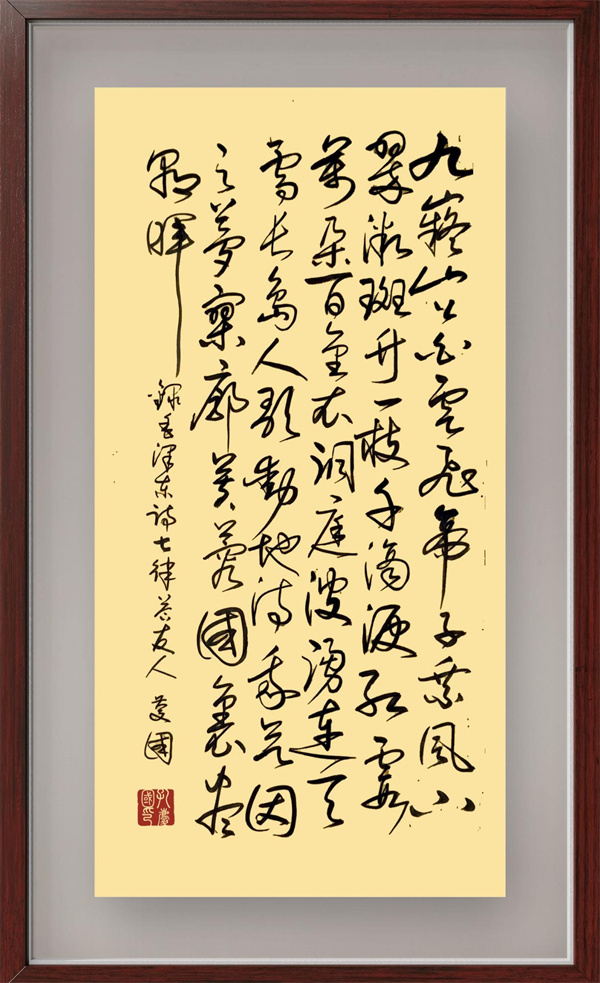 九嶷山上白雲飛帝子乘風下
翠微斑竹一枝千滴淚紅霞
萬朵百重衣洞庭波湧連天
雪長島人歌動地詩我欲因
之夢寥廓芙蓉國裏盡
朝暉
錄毛澤東詩七律答友人 慶國
孔慶國印